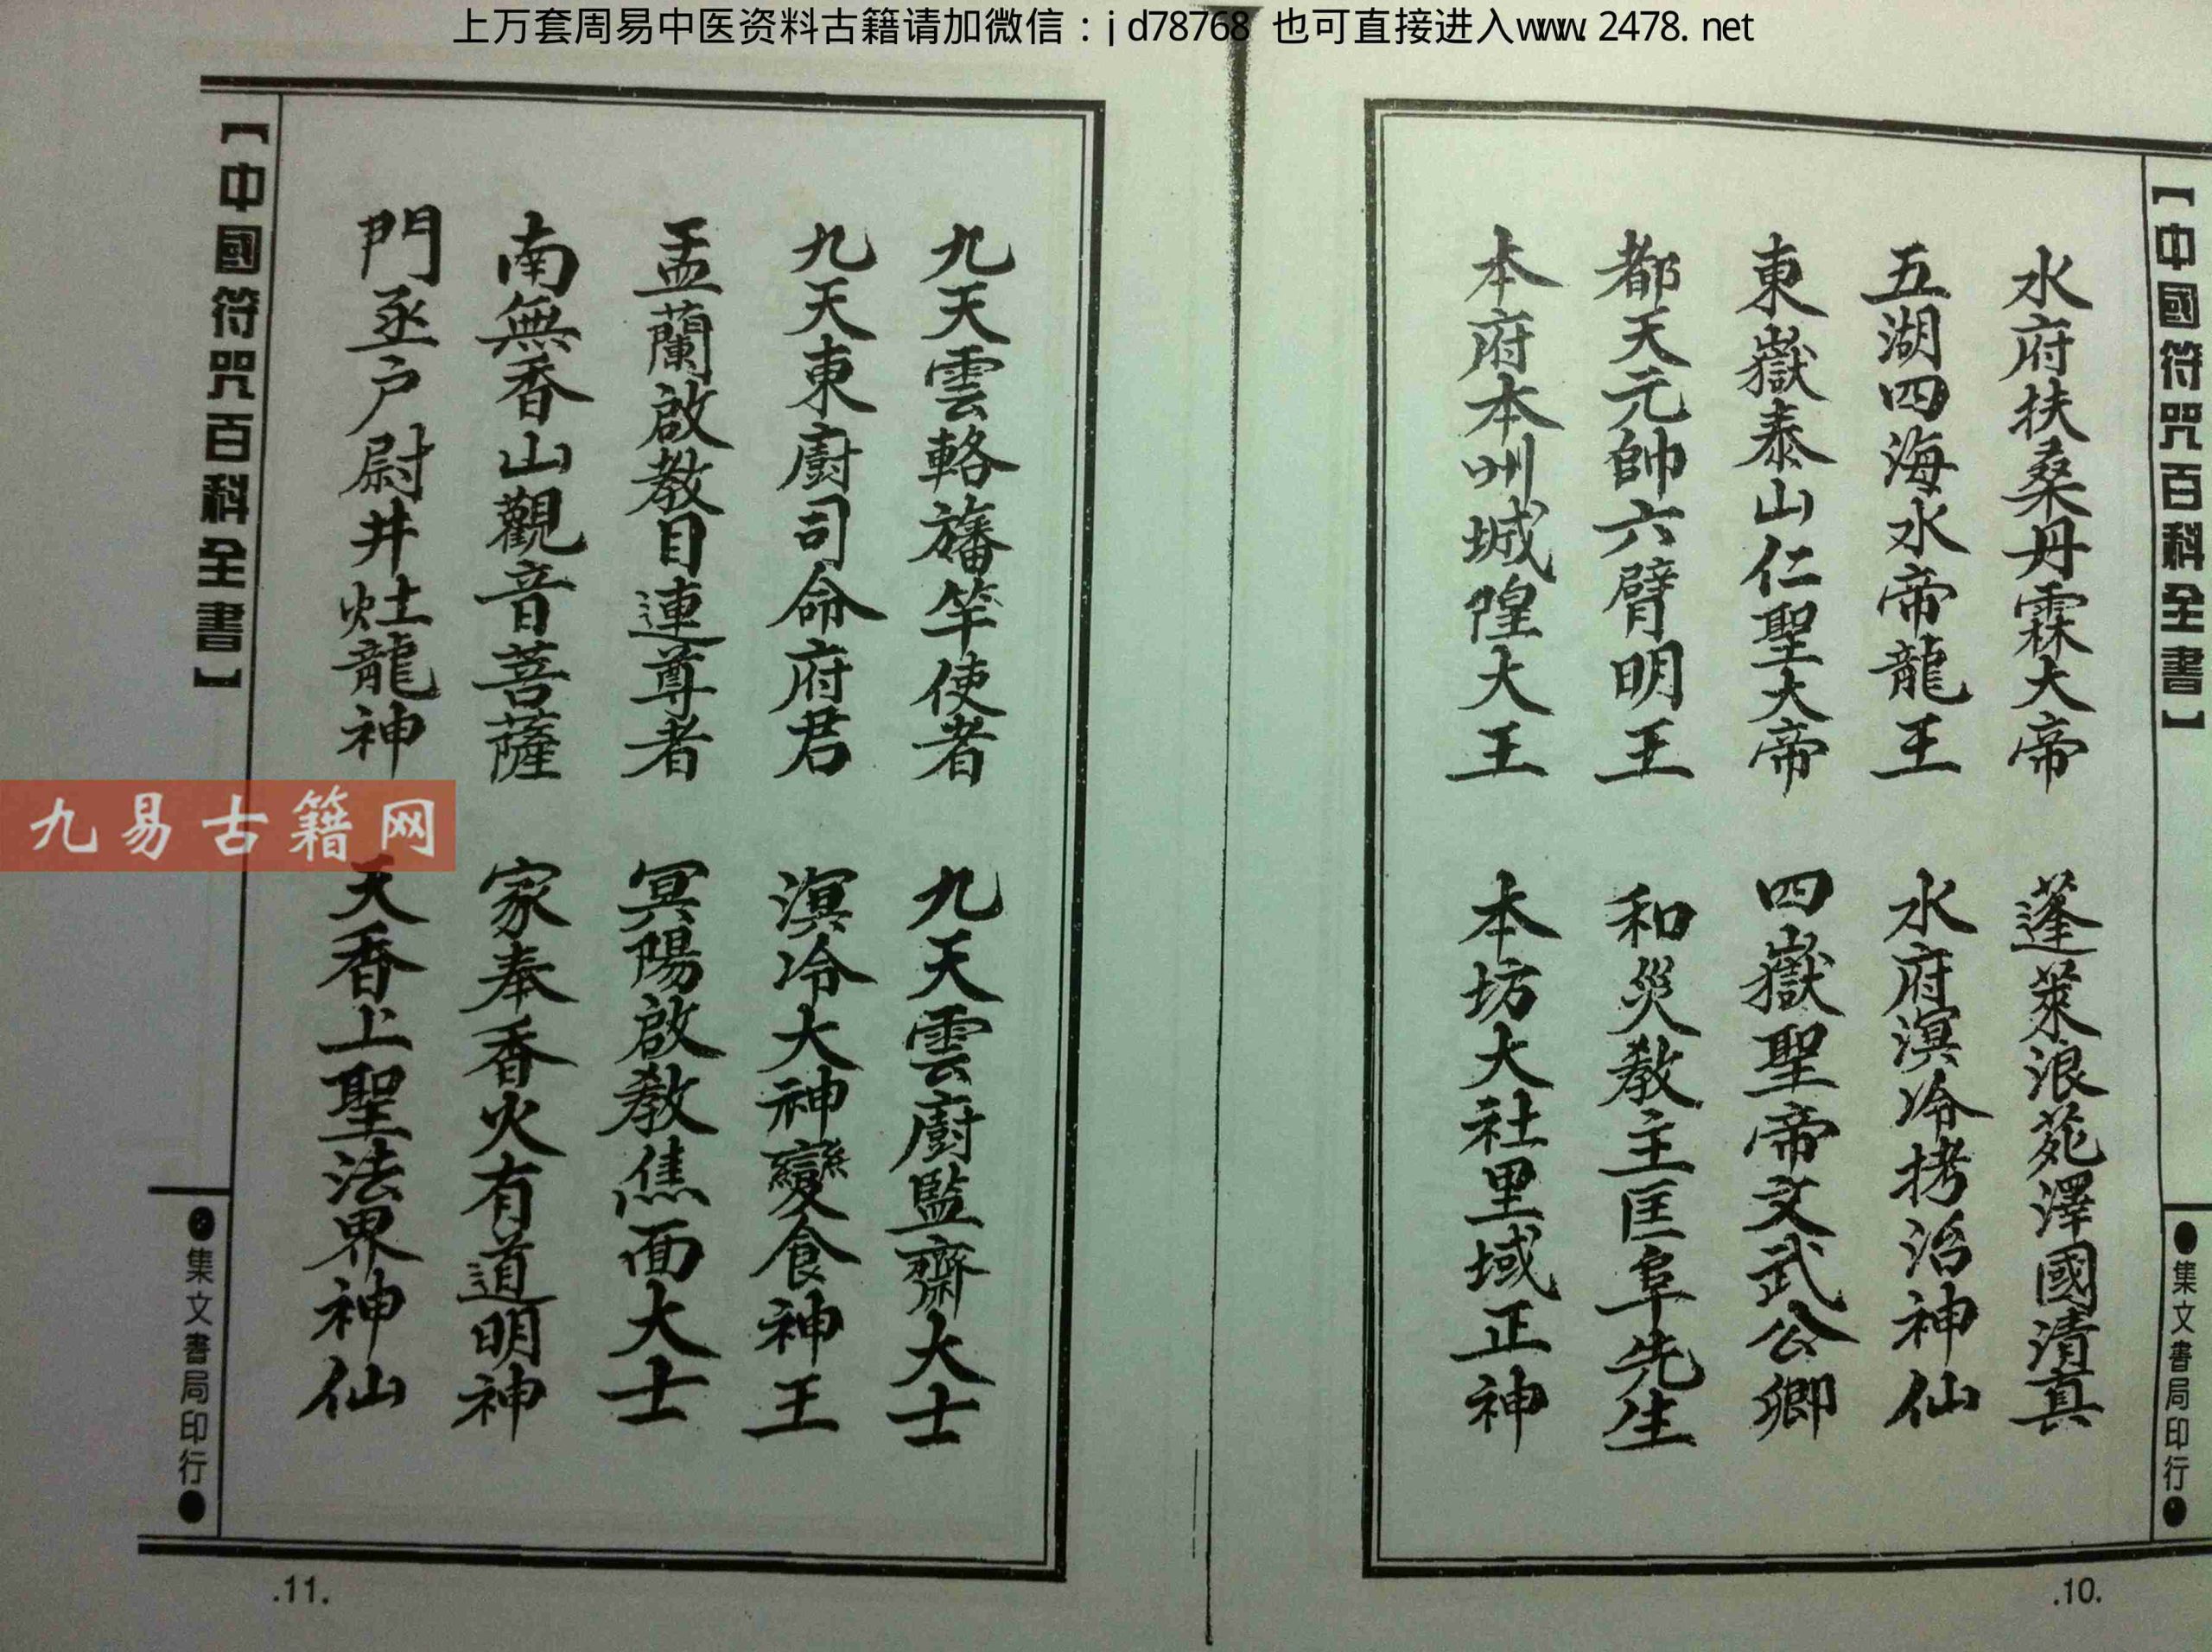 上万套周易中医资料古籍请加微信：jd78768 也可直接进入www.2478.net
【中國符咒百科全書】
●集文書局印行●
水府扶桑丹霖大帝
蓬萊浪苑澤國清真
五湖四海水帝龍王
水府溟泠拷治神仙
東嶽泰山仁聖大帝
四嶽聖帝文武公卿
都天元帥六臂明王
和災教主匡阜先生
本府本州城隍大王
本坊大社里域正神
.10.
九天雲輅旛竿使者
九天雲廚監齋大士
九天東廚司命府君
溟泠大神變食神王
盂蘭啟教目連尊者
冥陽啟教焦面大士
南無香山觀音菩薩
家奉香火有道明神
門丞户尉井灶龍神
天香上聖法界神仙
【中國符咒百科全書】
●集文書局印行●
.11.
九易古籍网